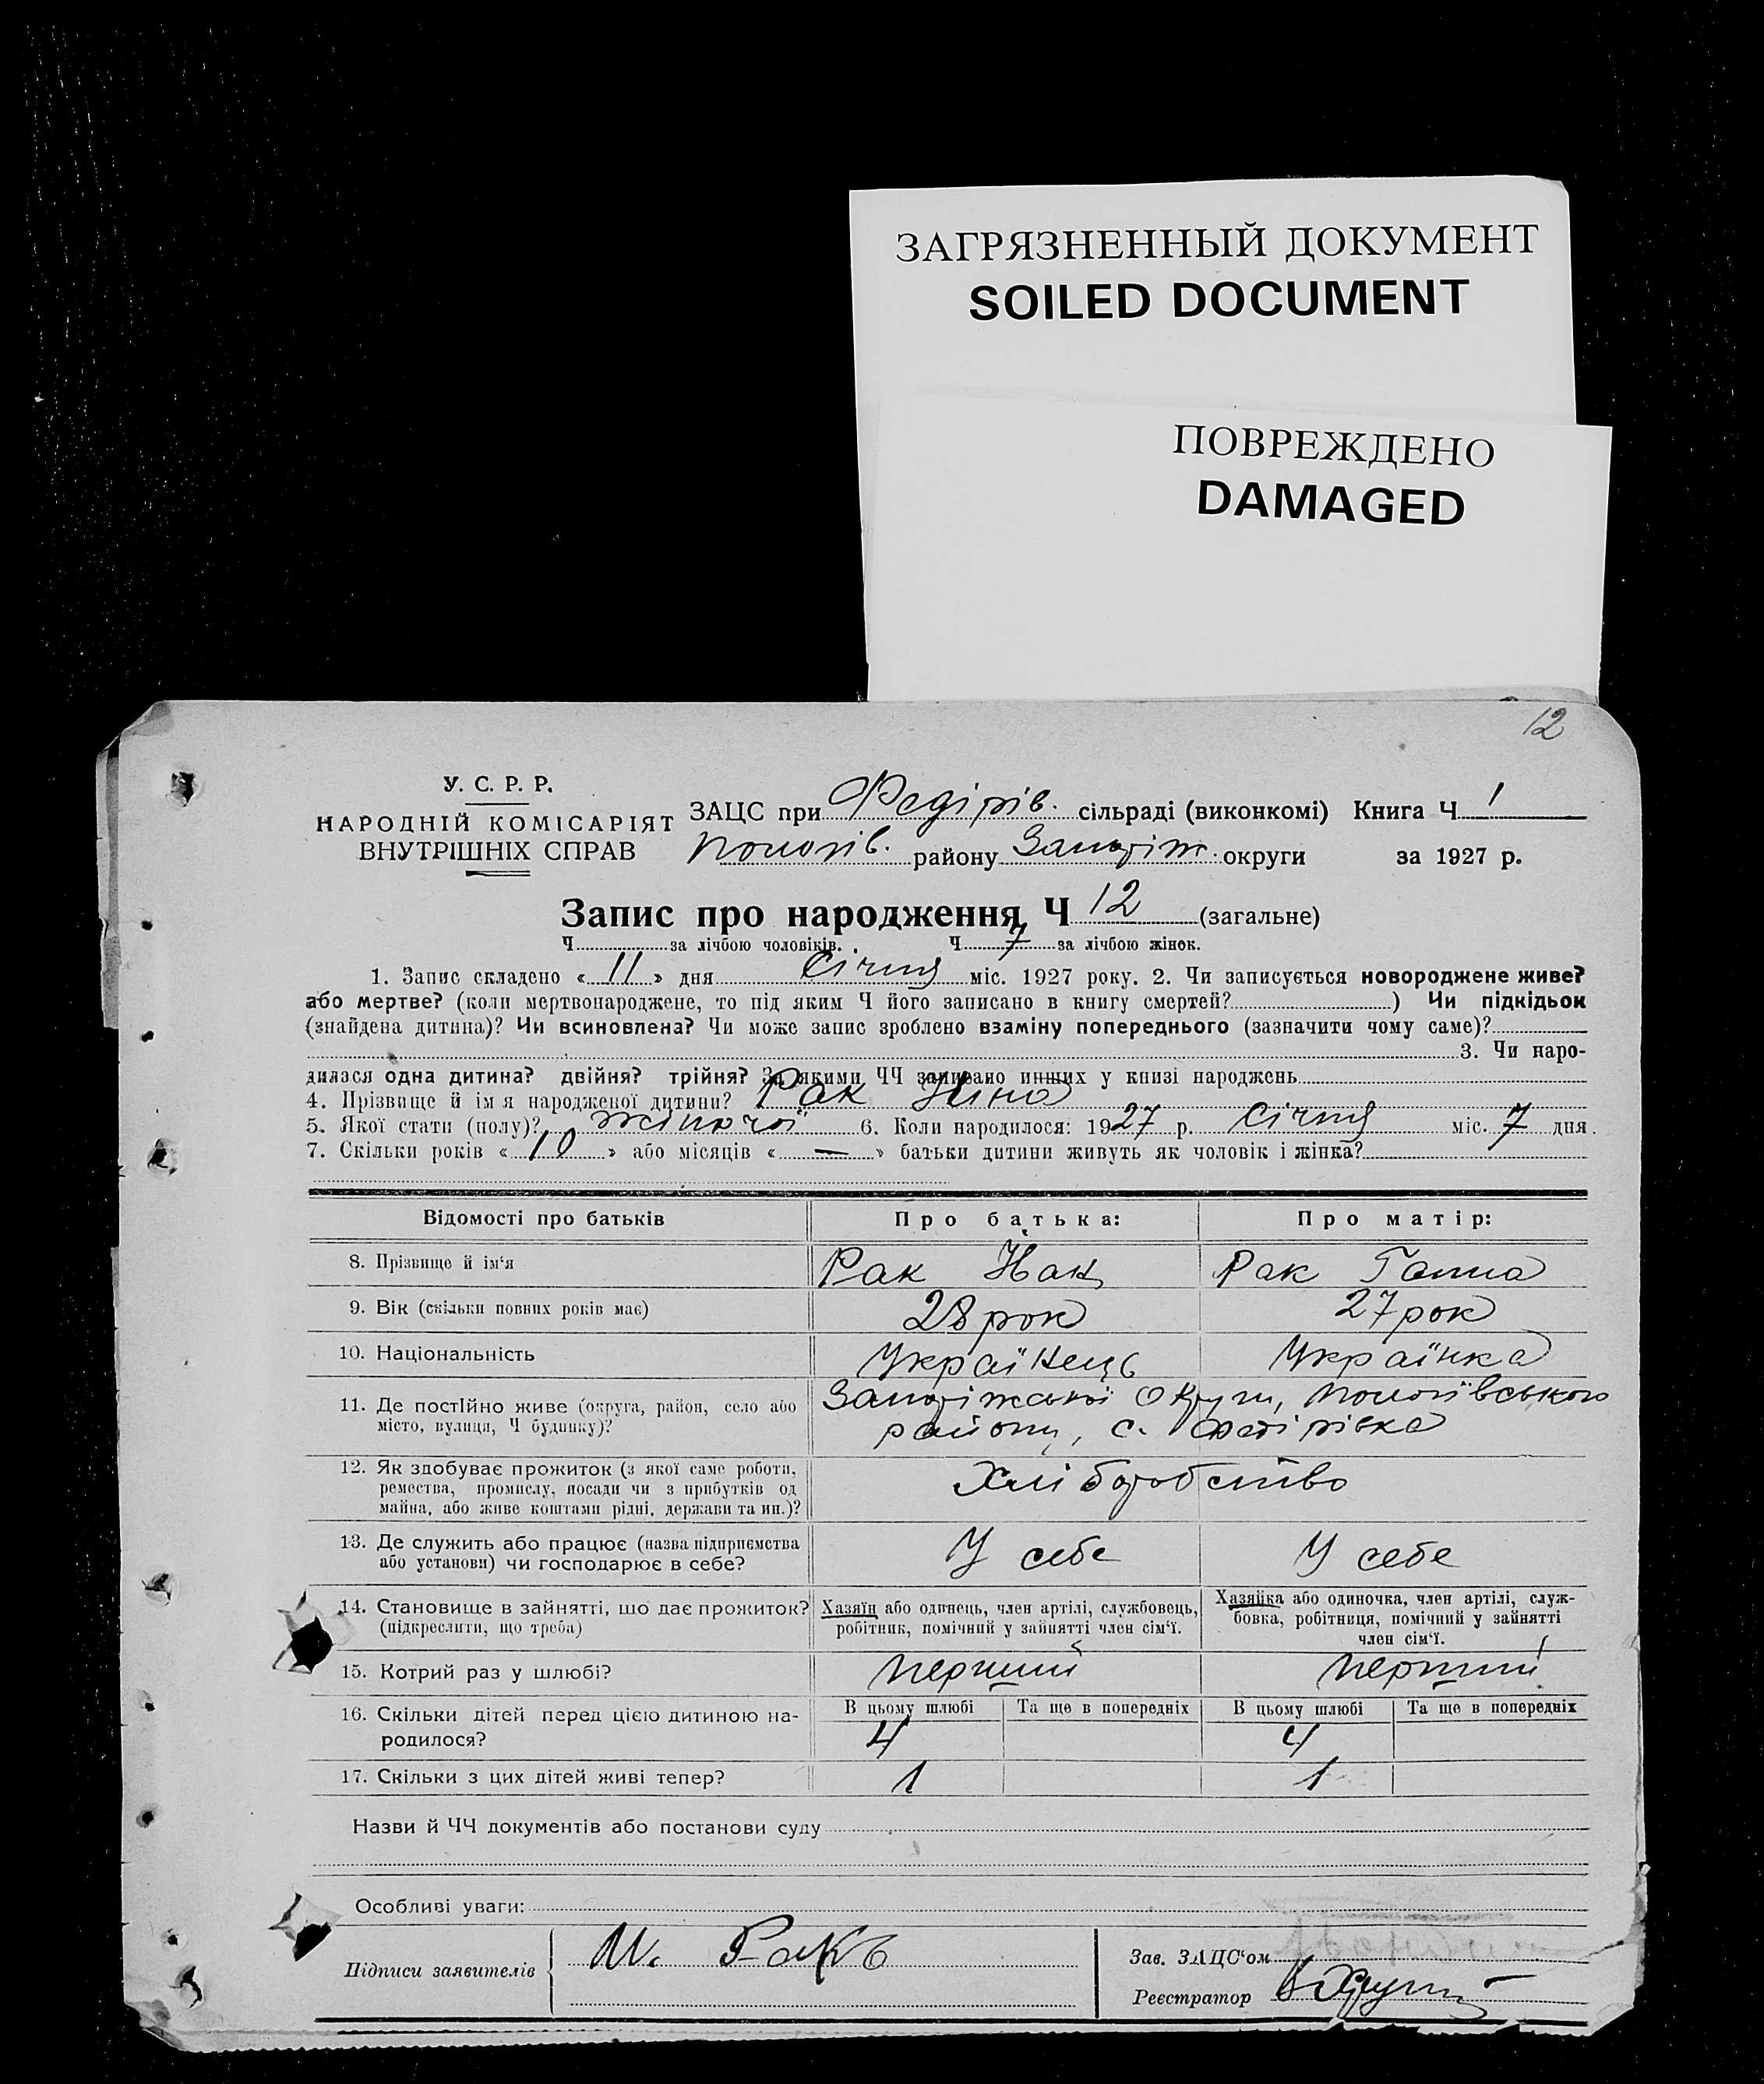 ЗАГРЯЗНЕННЫЙ ДОКУМЕНТ
SOILED DOCUMENT
ПОВРЕЖДЕНО
DAMAGED
12
У. С. Р. Р.
НАРОДНІЙ КОМІСАРІЯТ
ВНУТРІШНІХ СПРАВ
ЗАЦС при Федірів. сільраді (виконкомі) Книга Ч 1
Пологів. району Запоріж. округи за 1927 р.
Запис про народження Ч 12 (загальне)
Ч за лічбою чоловіків. Ч 7 за лічбою жінок.
1. Запис складено « 11 » дня Січня міс. 1927 року. 2. Чи записується новороджене живе?
або мертве? (коли мертвонароджене, то під яким Ч його записано в книгу смертей? ) Чи підкідьок
(знайдена дитина)? Чи всиновлена? Чи може запис зроблено взаміну попереднього (зазначити чому саме)?
3. Чи наро-
дилася одна дитина? двійня? трійня? За якими ЧЧ записано инших у книзі народжень
4. Прізвище й ім я народженої дитини? Рак Ніна
5. Якої стати (полу)? жіночої 6. Коли народилося: 1927 р. Січня міс. 7 дня.
7. Скільки років « 10 » або місяців « — » батьки дитини живуть як чоловік і жінка?
Відомості про батьків Про батька: Про матір:
8. Прізвище й ім‘я Рак Рак Ганна
9. Вік (скільки повних років має) 28 рок 27 рок
10. Національність Українець Українка
11. Де постійно живе (округа, район, село або
місто, вулиця, Ч будинку)?
Запоріжської Округи, Пологівського
району, с. Федірівка
12. Як здобуває прожиток (з якої саме роботи,
ремества, промислу, посади чи з прибутків од
майна, або живе коштами рідні, держави та ин.)?
Хліборобство
13. Де служить або працює (назва підприємства
або установи) чи господарює в себе?
У себе У себе
14. Становище в зайнятті, що дає прожиток?
(підкреслити, що треба)
Хазяїн або одинець, член артілі, службовець,
робітник, помічний у зайнятті член сім‘ї.
Хазяйка або одиночка, член артілі, служ-
бовка, робітниця, помічний у зайнятті
член сім‘ї.
15. Котрий раз у шлюбі? перший перший
16. Скільки дітей перед цією дитиною на-
родилося?
В цьому шлюбі Та ще в попередніх В цьому шлюбі Та ще в попередніх
4 4
17. Скільки з цих дітей живі тепер? 1 1
Назви й ЧЧ документів або постанови суду
Особливі уваги:
Підписи заявителів Ракъ
Зав. ЗАЦС‘ом
Реєстратор